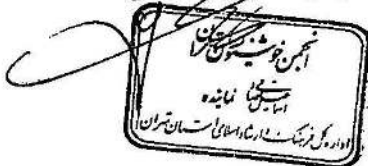 انجمن خوشنویسان ایران
نماینده
اداره کل فرهنگ و ارشاد اسلامی استان تهران